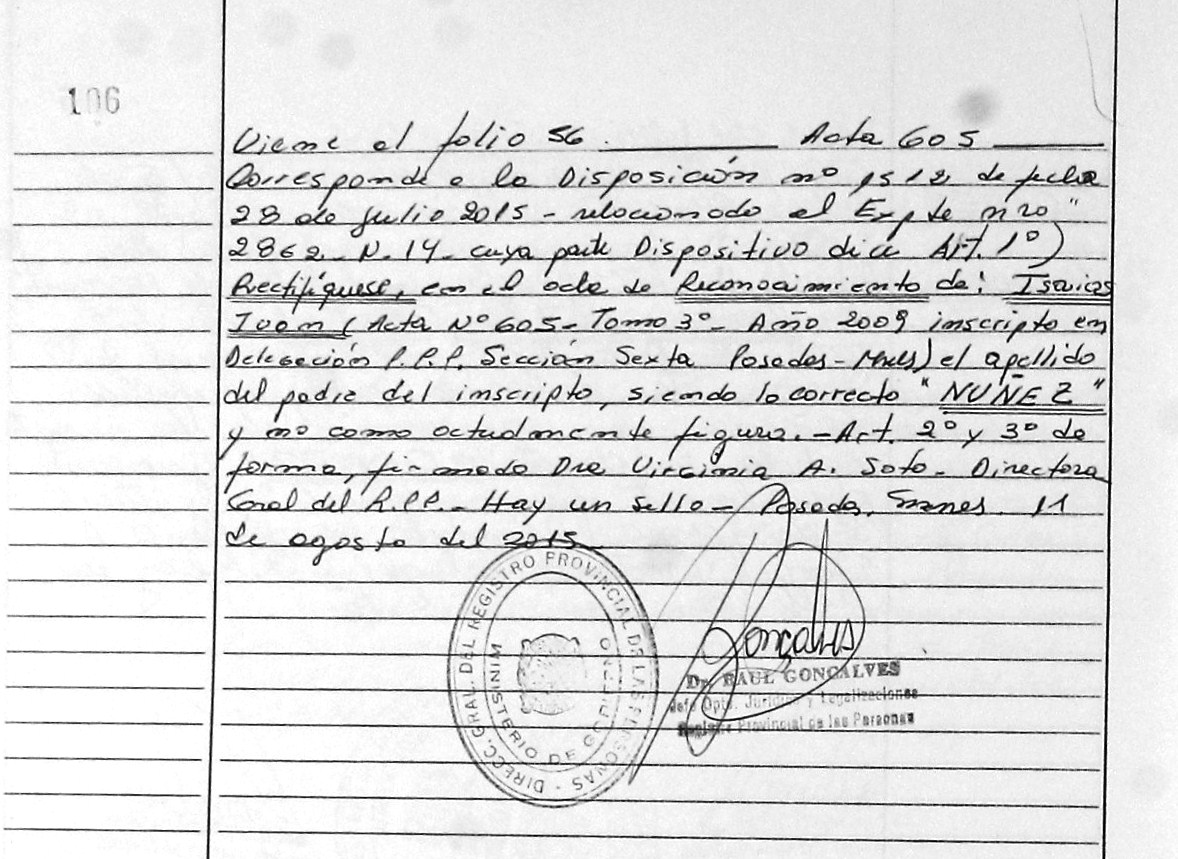 106
Viene al folio 56. Acta 605
Corresponde a la Disposición nº 1512, de fecha
28 de julio 2015 - relacionado al Expte nro "
2862 - N. 14 - cuya parte Dispositiva dice Art. 1º)
Rectifíquese, en el acta de Reconocimiento de: Isaias
Ivan (Acta Nº 605 - Tomo 3º - Año 2009 inscripto en
Delegación R.P.P. Sección Sexta Posadas - Mnes) el apellido
del padre del inscripto, siendo lo correcto "NUÑEZ"
y no como actualmente figura. - Art. 2º y 3º de
forma, firmado Dra Virginia A. Soto - Directora
Gral del R.P.P. - Hay un sello - Posadas, Mnes. 11
de agosto del 2015
DIRECC. GRAL. DEL REGISTRO PROVINCIAL DE LAS PERSONAS
MINISTERIO DE GOBIERNO
Gonçalves
Dr. RAUL GONCALVES
Jefe Dpto. Jurídico y Legalizaciones
Registro Provincial de las Personas